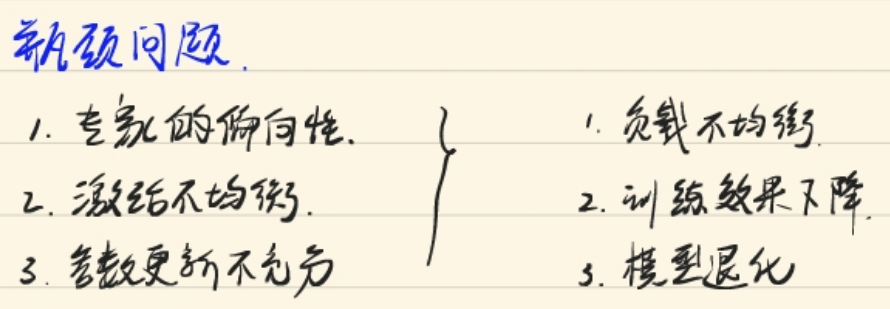 瓶颈问题.
1. 专家的偏向性.
2. 激活不均衡.
3. 参数更新不充分
1. 负载不均衡.
2. 训练效果下降.
3. 模型退化